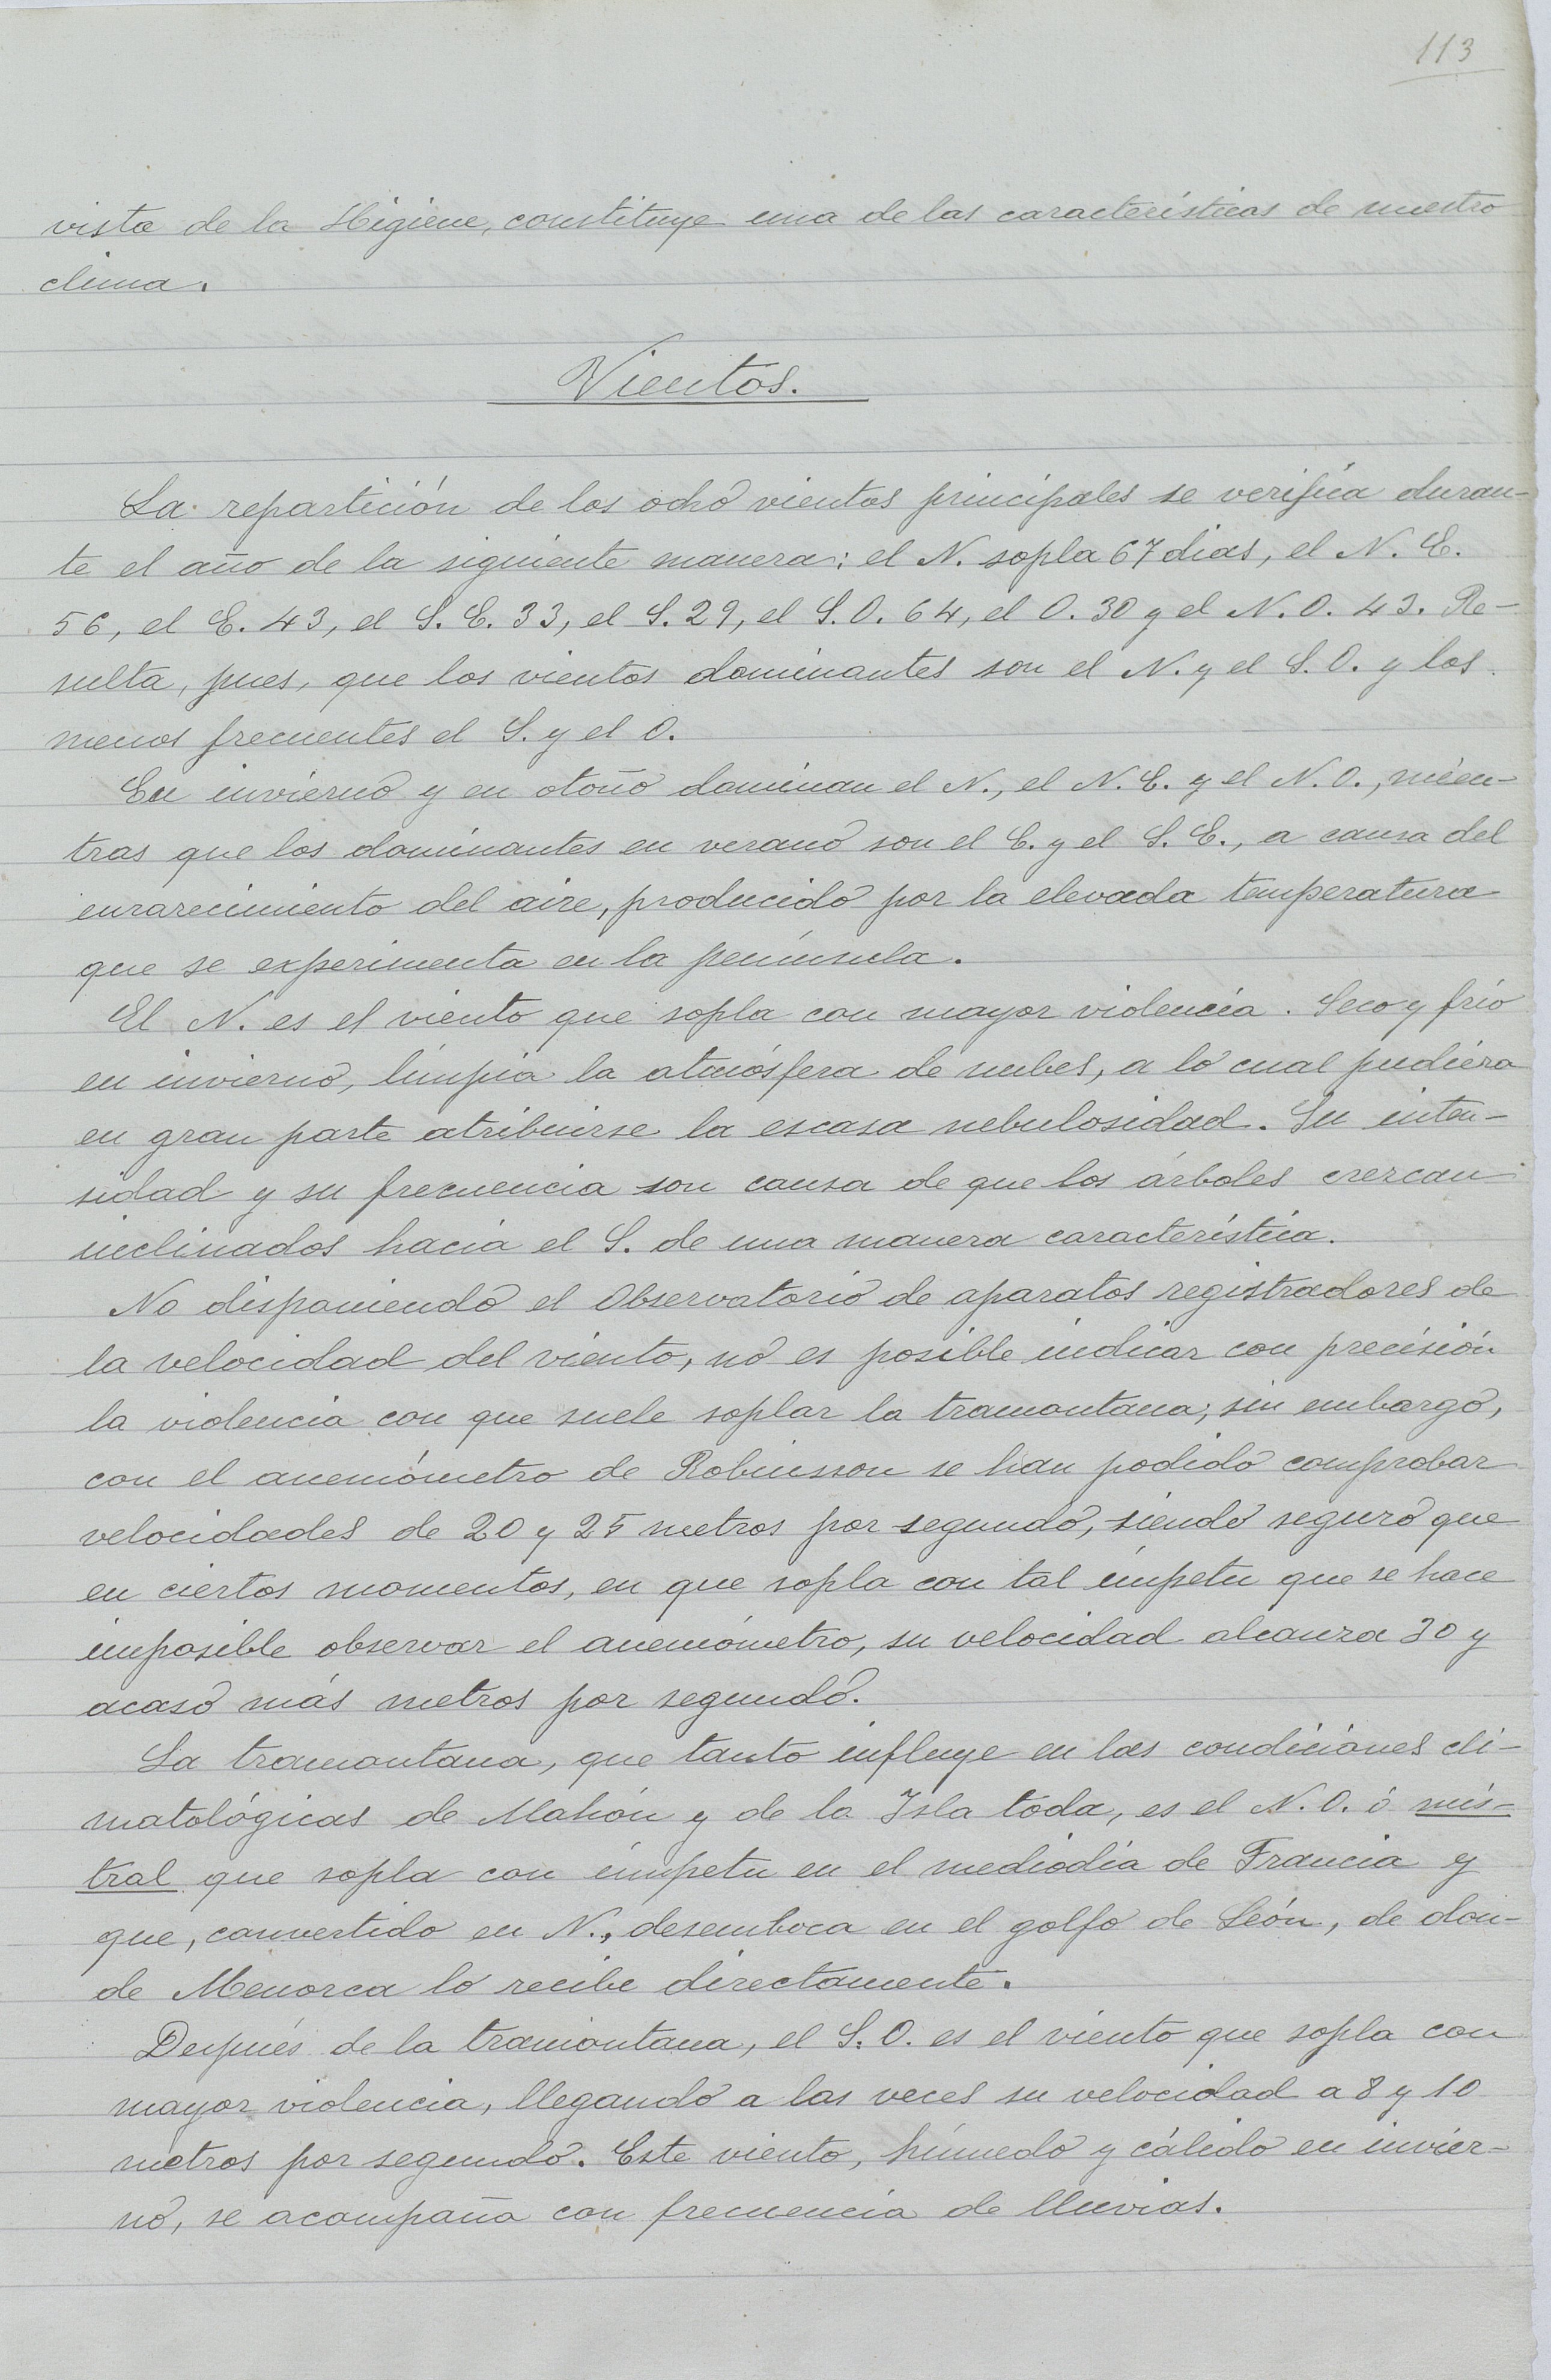 113
vista de la Higiene, constituye una de las características de nuestro
clima.
Vientos.
La repartición de los ocho vientos principales se verifica duran-
te el año de la siguiente manera: el N. sopla 67 dias, el N. E.
56, el E. 43, el S. E. 33, el S. 29, el S. O. 64, el O. 30 y el N. O. 43. Re-
sulta, pues, que los vientos dominantes son el N. y el S. O. y los
menos frecuentes el S. y el O.
En invierno y en otoño dominan el N., el N. E. y el N. O., mien-
tras que los dominantes en verano son el E. y el S. E., a causa del
enrarecimiento del aire, producido por la elevada temperatura
que se experimenta en la península.
El N. es el viento que sopla con mayor violencia. Seco y frío
en invierno, limpia la atmósfera de nubes, a lo cual pudiera
en gran parte atribuirse la escasa nebulosidad. Su inten-
sidad y su frecuencia son causa de que los árboles crezcan
inclinados hacia el S. de una manera característica.
No disponiendo el Observatorio de aparatos registradores de
la velocidad del viento, no es posible indicar con precisión
la violencia con que suele soplar la tramontana; sin embargo,
con el anemómetro de Robinsson se han podido comprobar
velocidades de 20 y 25 metros por segundo, siendo seguro que
en ciertos momentos, en que sopla con tal ímpetu que se hace
imposible observar el anemómetro, su velocidad alcanza 30 y
acaso más metros por segundo.
La tramontana, que tanto influye en las condiciones cli-
matológicas de Mahón y de la Isla toda, es el N. O. ó mis-
tral que sopla con ímpetu en el mediodía de Francia y
que, convertido en N., desemboca en el golfo de León, de don-
de Menorca lo recibe directamente.
Después de la tramontana, el S. O. es el viento que sopla con
mayor violencia, llegando a las veces su velocidad a 8 y 10
metros por segundo. Este viento, húmedo y cálido en invier-
no, se acompaña con frecuencia de lluvias.